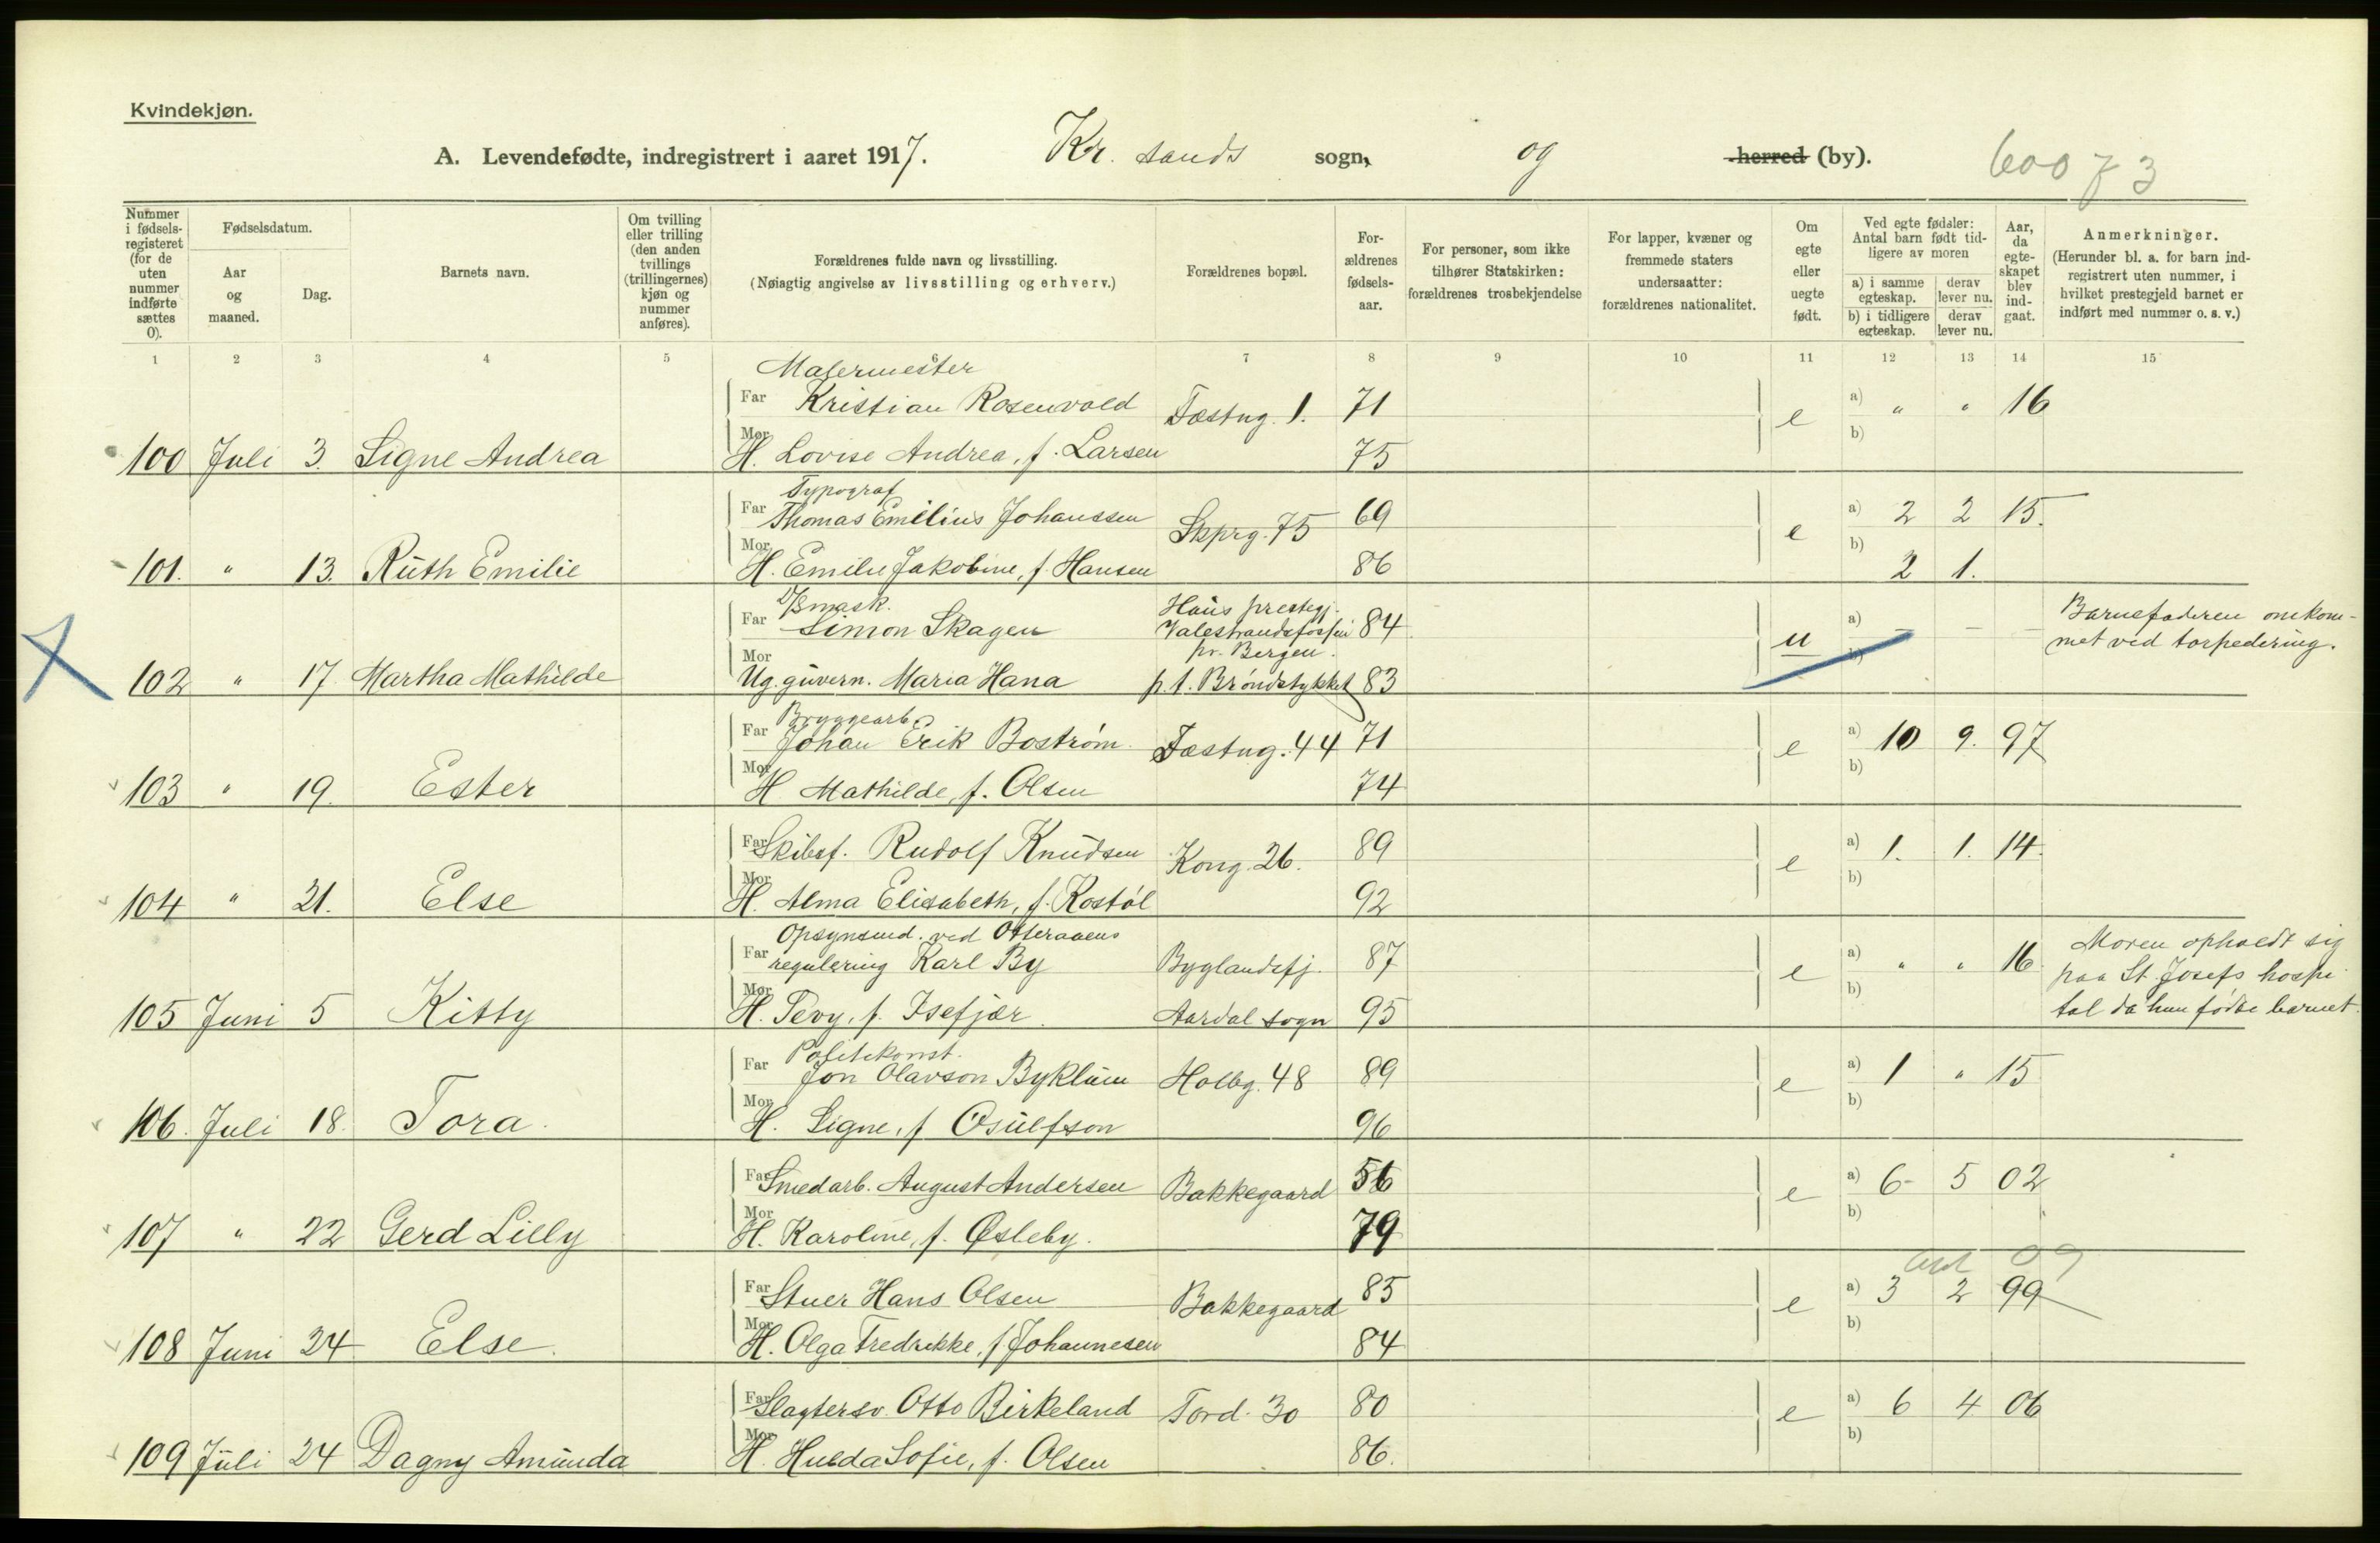 Kvindekjøn.
A. Levendefødte, indregistrert i aaret 1917. Kr. sands sogn, og herred (by). 600 73
Nummer i fødsels-registeret (for de uten nummer indførte sættes 0).
Fødselsdatum.
Aar og maaned.
Dag.
Barnets navn.
Om tvilling eller trilling (den anden tvillings (trillingernes) kjøn og nummer anføres).
Forældrenes fulde navn og livsstilling.
(Nøiagtig angivelse av livsstilling og erhverv.)
Forældrenes bopæl.
For-ældrenes fødsels-aar.
For personer, som ikke tilhører Statskirken: forældrenes trosbekjendelse
For lapper, kvæner og fremmede staters undersaatter: forældrenes nationalitet.
Om egte eller uegte født.
Ved egte fødsler: Antal barn født tid-ligere av moren
a) i samme egteskap.
derav lever nu.
b) i tidligere egteskap.
derav lever nu.
Aar, da egte-skapet blev ind-gaat.
Anmerkninger.
(Herunder bl. a. for barn ind-registrert uten nummer, i hvilket prestegjeld barnet er indført med nummer o. s. v.)
1 2 3 4 5 6 7 8 9 10 11 12 13 14 15
Malermester
Far Kristian Rosenvold Fæstng. 1. 71 e a) " " 16
b)
100 Juli 3. Signe Andrea Mor H. Lovise Andrea, f. Larsen 75
Typograf
Far Thomas Emilius Johanssen Skprg. 75 69 e a) 2 2 15.
101. " 13. Ruth Emilie Mor H. Emilie Jakobine, f. Hansen 86 b) 2 1.
D/smask. Haus prestegj. Barnefaderen omkom-
Far Simon Skagen Valestrandsfossen 84 u a) — — — met ved torpedering.
pr. Bergen. b)
102 " 17 Martha Mathilde Mor Ug. guvern. Maria Hana p.t. Brøndstykket 83
Bryggearb.
Far Johan Erik Bostrøm Fæstng. 44 71 e a) 10 9. 97
b)
103 " 19. Ester Mor H Mathilde, f. Olsen 74
Far Skibsf. Rudolf Knudsen Kong. 26. 89 e a) 1. 1. 14.
b)
104 " 21. Else Mor H. Alma Elisabeth, f. Rostøl 92
Opsynsmd. ved Otteraaens Moren opholdt sig
Far regulering Karl By Byglandsfj. 87 e a) " " 16 paa St. Josefs hospi-
b)
105 Juni 5 Kitty Mor H. Pevy, f. Isefjær Aardal sogn 95 tal da hun fødte barnet.
Politikonst.
Far Jon Olavson Byklum Holbg. 48 89 e a) 1 " 15
b)
106. Juli 18. Tora. Mor H. Signe, f Osulfson 96
Far Smedarb. August Andersen Bakkegaard 56 e a) 6- 5 02
b)
107 " 22 Gerd Lilly Mor H. Karoline, f. Øsleby. 79
09
Far Stuer Hans Olsen Bakkegaard 85 e a) 3 2 99
b)
108 Juni 24 Else. Mor H. Olga Fredrikke, f. Johannesen 84
Far Slagtersv. Otto Birkeland Tord. 30 80 e a) 6 4 06
b)
109 Juli 24 Dagny Amunda Mor H. Hulda Sofie, f. Olsen 86.